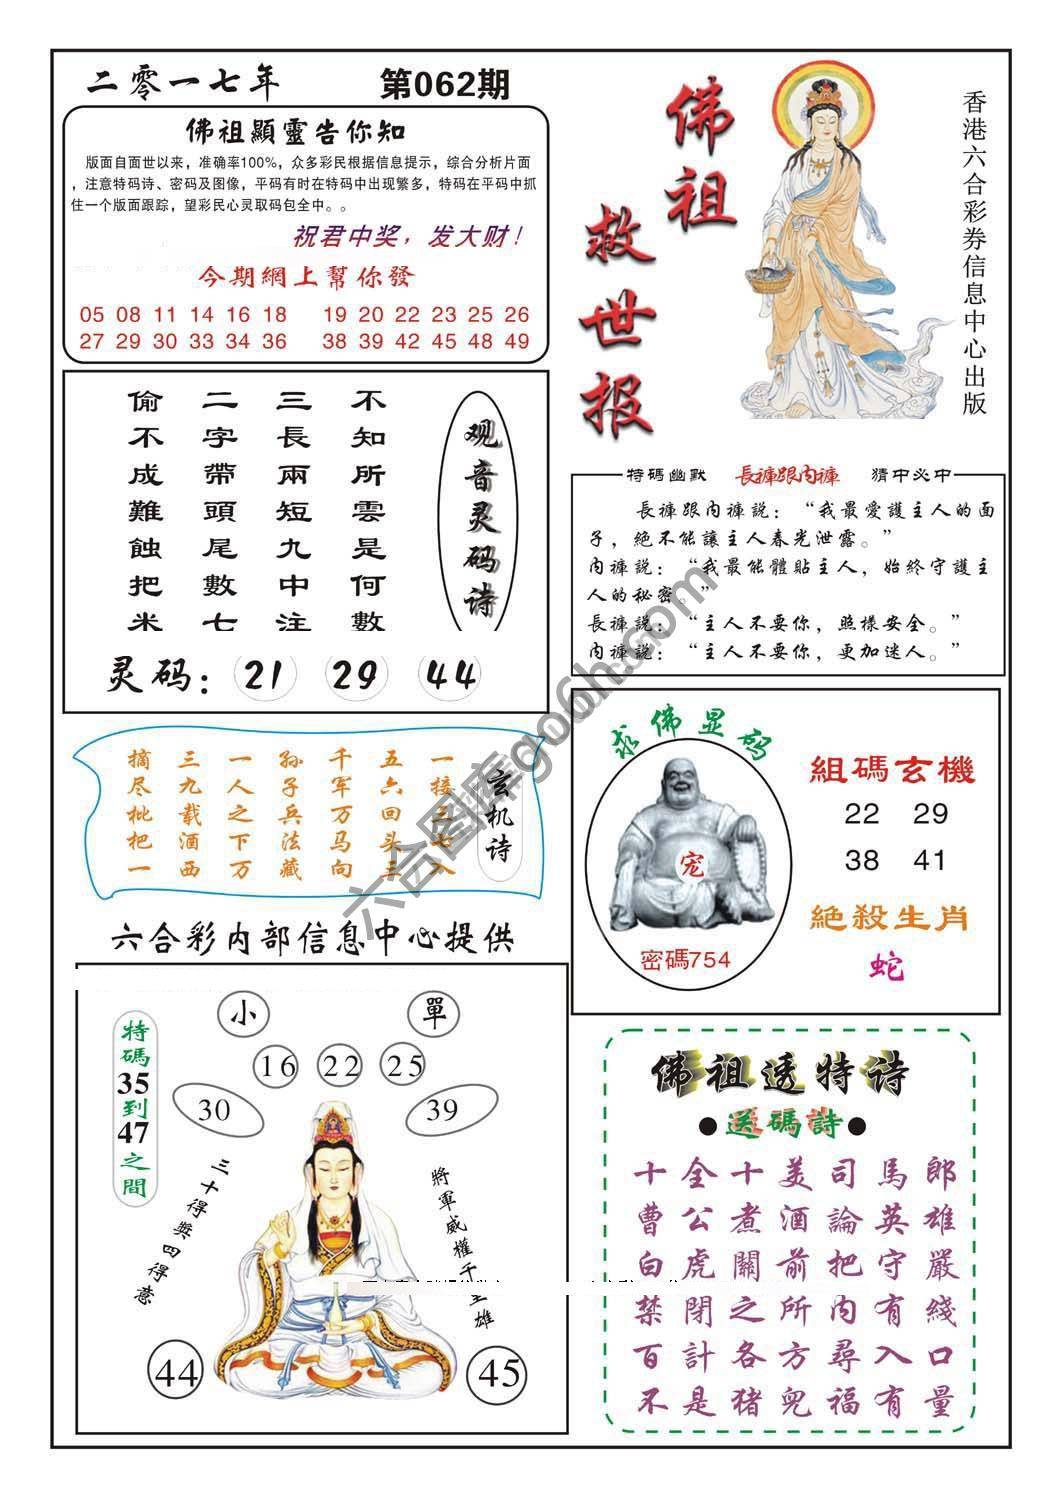 二零一七年 第062期
佛祖顯靈告你知
版面自面世以来，准确率100%，众多彩民根据信息提示，综合分析片面
，注意特码诗、密码及图像，平码有时在特码中出现繁多，特码在平码中抓
住一个版面跟踪，望彩民心灵取码包全中。。
祝君中奖，发大财！
今期網上幫你發
05 08 11 14 16 18 19 20 22 23 25 26
27 29 30 33 34 36 38 39 42 45 48 49
佛祖
救世报
香港六合彩券信息中心出版
观音灵码诗
不知所雲是何數
三長兩短九中注
二字帶頭尾數七
偷不成難蝕把米
灵码：21 29 44
特碼幽默 長褲跟內褲 猜中必中
長褲跟內褲說：“我最愛護主人的面
子，絕不能讓主人春光泄露。”
內褲説：“我最能體貼主人，始終守護主
人的秘密。”
長褲説：“主人不要你，照樣安全。”
內褲説：“主人不要你，更加迷人。”
玄机诗
一接三七八
五六回头三
千军万马向
孙子兵法藏
一人之下万
三九载酒西
摘尽枇把一
求佛显码
宠
密碼754
組碼玄機
22 29
38 41
絕殺生肖
蛇
六合彩内部信息中心提供
小 單
16 22 25
30 39
特碼35到47之間
三十得獎四得意
將軍威權千
雄
44 45
佛祖透特诗
●送碼詩●
十全十美司馬郎
曹公煮酒論英雄
白虎關前把守嚴
禁閉之所内有綫
百計各方尋入口
不是猪兜福有量
六合图库go6h.com